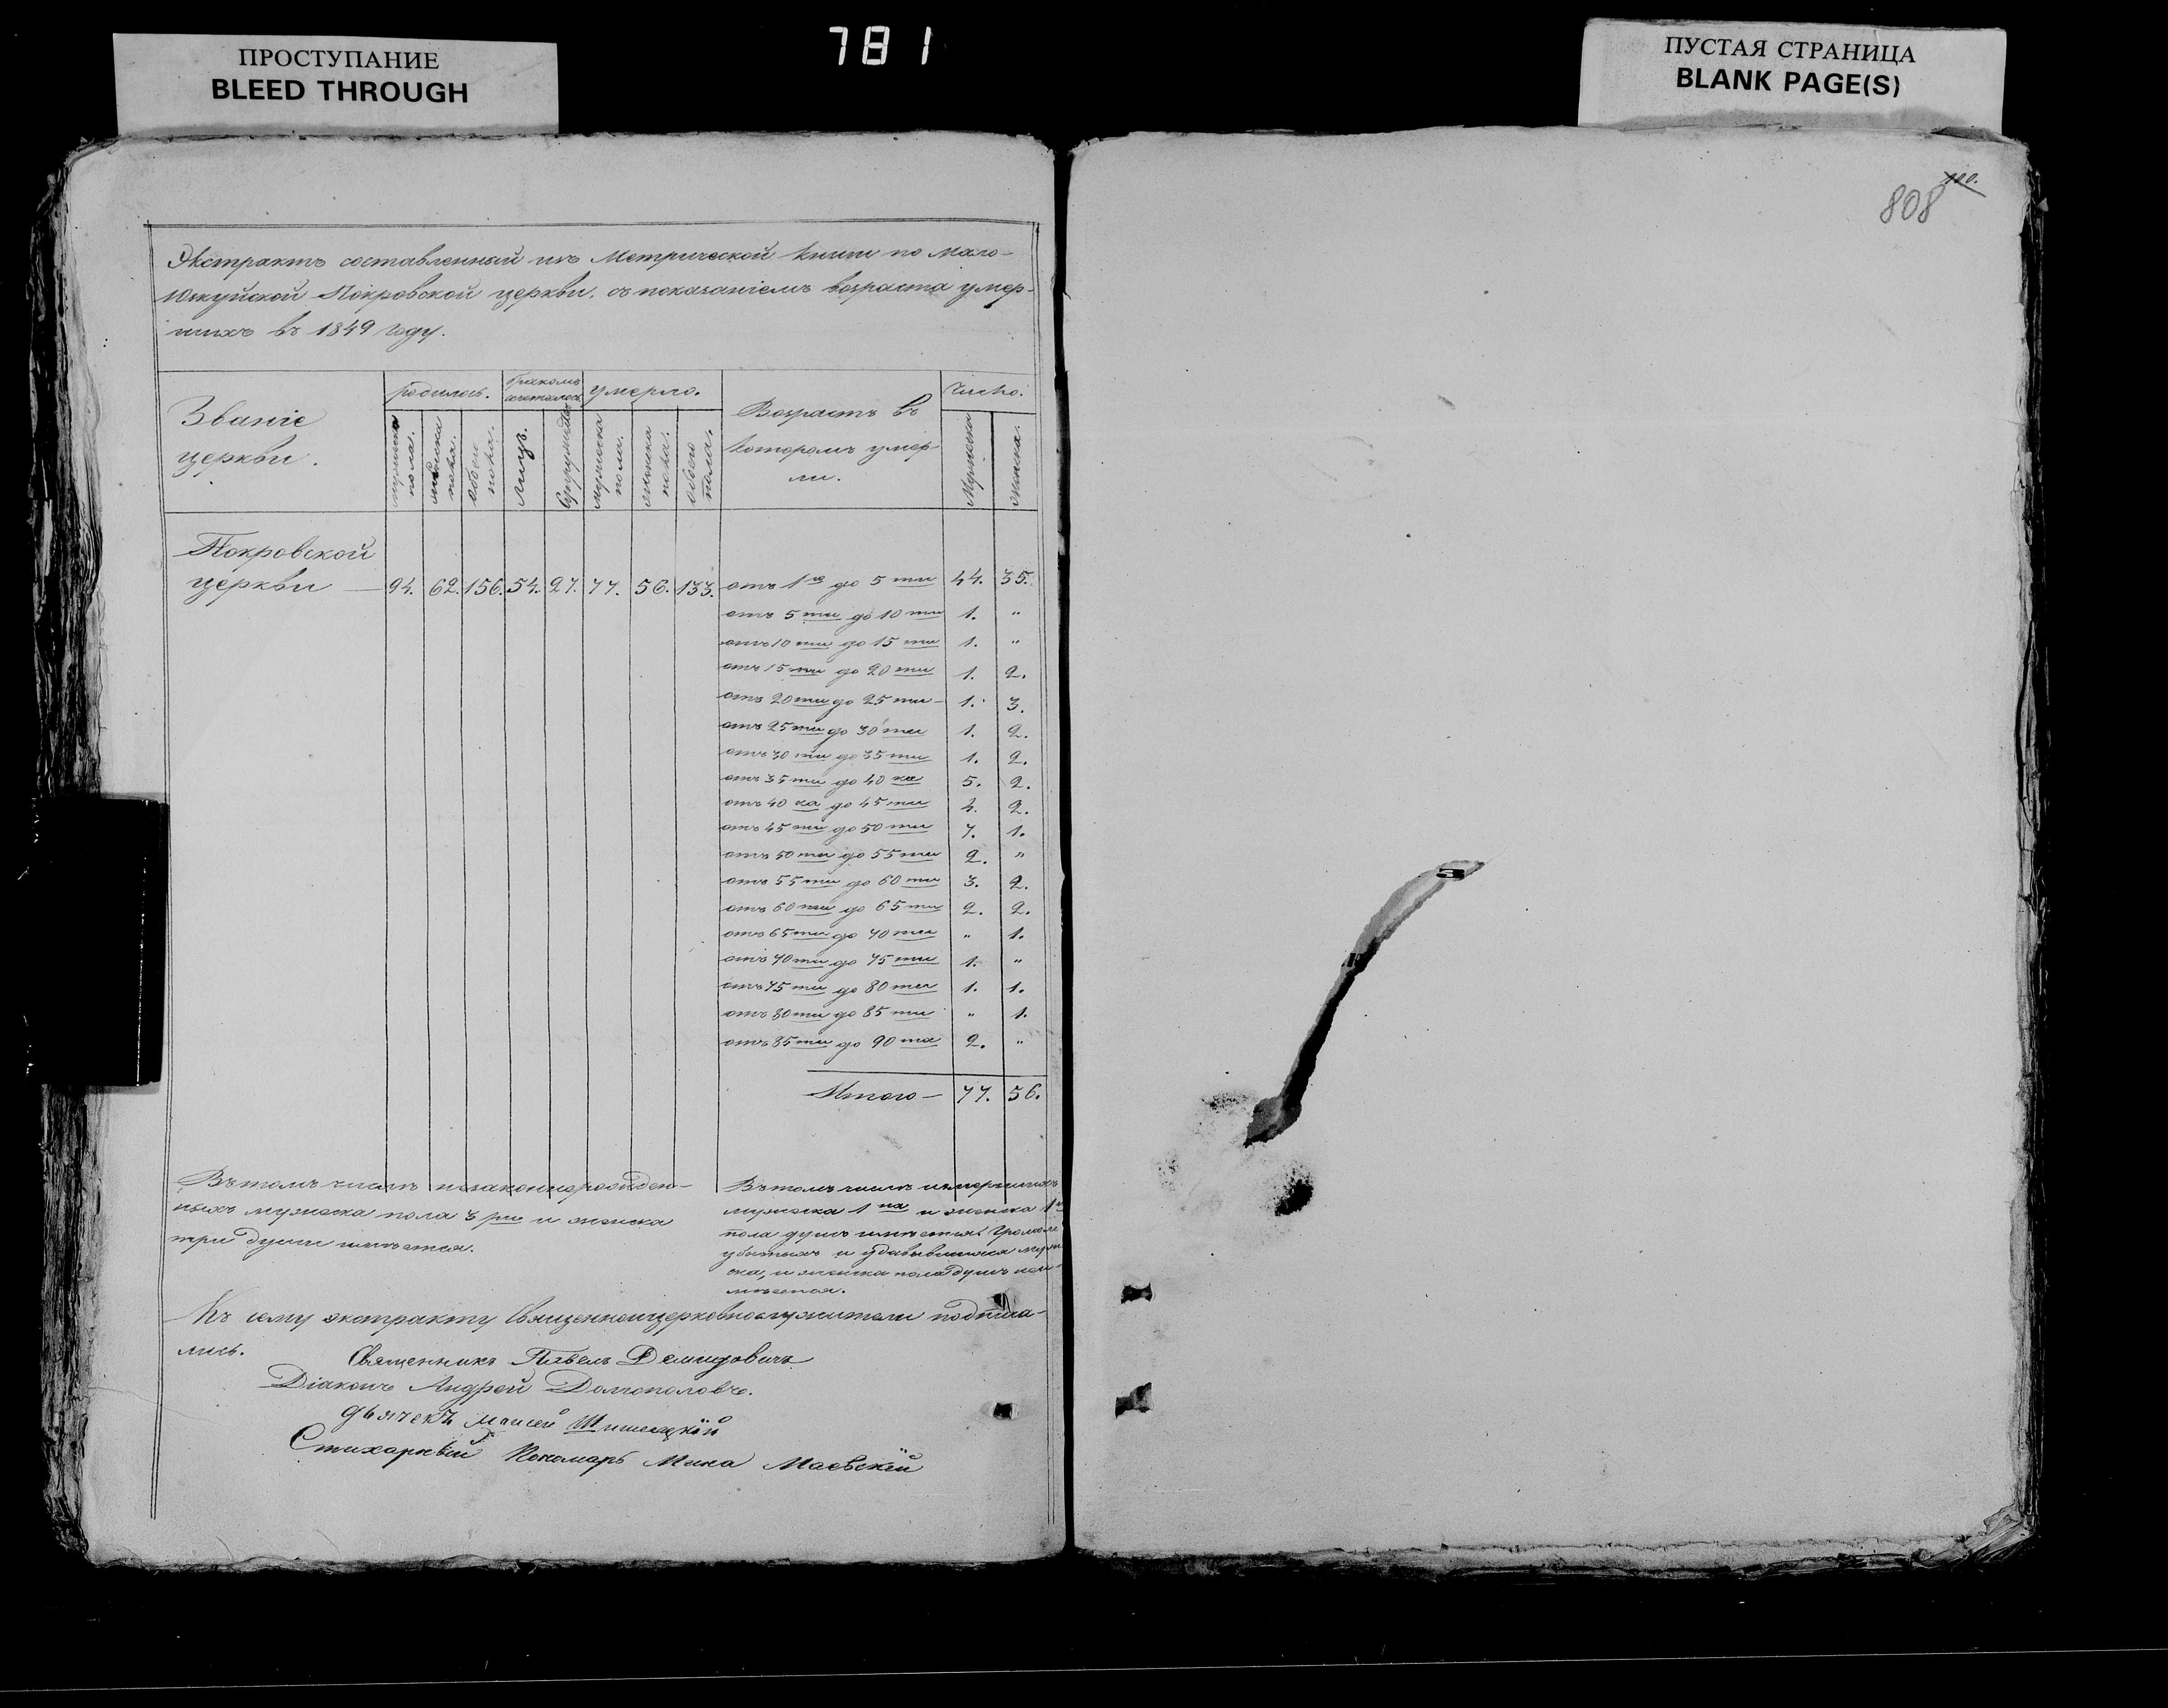 ПРОСТУПАНИЕ
BLEED THROUGH
781
ПУСТАЯ СТРАНИЦА
BLANK PAGE(S)
808
100.
Экстрактъ составленный изъ Метрической книги по Мало-
Покровской церкви, съ показаніемъ возраста умер-
шихъ въ 1849 году.
Званіе
церкви.
родилось.
бракомъ
сочеталось
умерло.
Возрастъ въ
которомъ умер-
ли.
Число.
мужеска
пола.
женска
пола.
обоего
пола.
Лицъ.
Супружествъ
мужеска
пола.
женска
пола.
обоего
пола.
Мужеска
женска.
Покровской
церкви — 94. 62. 156. 54. 27. 77. 56. 133. отъ 1го до 5 ти 44. 35.
отъ 5 ти до 10 ти 1. "
отъ 10 ти до 15 ти 1. "
отъ 15 ти до 20 ти 1. 2.
отъ 20 ти до 25 ти - 1. 3.
отъ 25 ти до 30 ти 1. 2.
отъ 30 ти до 35 ти 1. 2.
отъ 35 ти до 40 ка 5. 2.
отъ 40 ка до 45 ти 4. 2.
отъ 45 ти до 50 ти 7. 1.
отъ 50 ти до 55 ти 2. "
отъ 55 ти до 60 ти 3. 2.
отъ 60 ти до 65 ти 2. 2.
отъ 65 ти до 70 ти " 1.
отъ 70 ти до 75 ти 1. "
отъ 75 ти до 80 ти 1. 1.
отъ 80 ти до 85 ти " 1.
отъ 85 ти до 90 та 2. "
Итого — 77. 56.
Въ томъ числѣ незаконнорожден-
ныхъ мужеска пола 3 ри и женска
три души имѣется.
Въ томъ числѣ умершихъ
мужеска 1 на и женска 1
пола душъ имѣется. Громомъ
убитыхъ и удавившихся муже
ска, и женска пола душъ неи-
мѣется.
Къ сему экстракту Священноицерковнослужители подписа-
лись.
Священникъ Павелъ Демидовичъ
Діаконъ Андрей Долгополовъ.
дьячекъ Моисей Шишацкій
Стихарный Пономарь Мина Маевскій